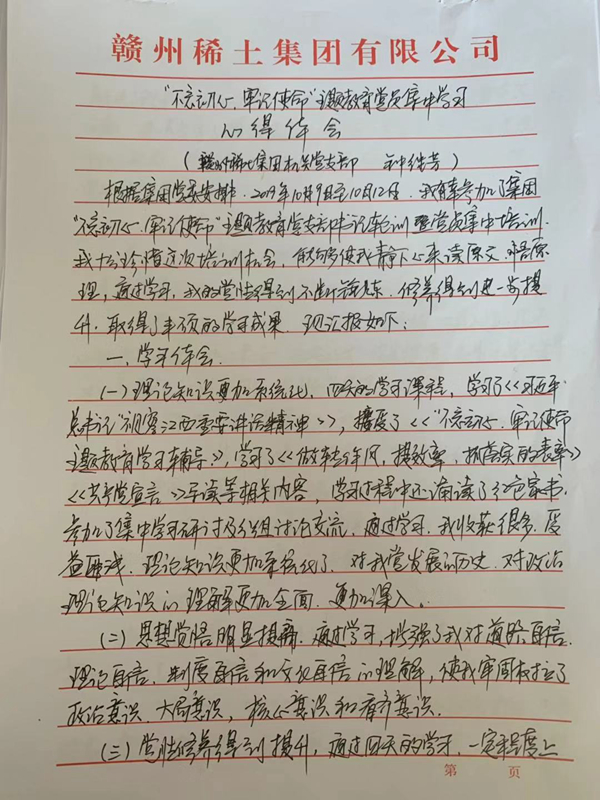 赣州稀土集团有限公司
“不忘初心、牢记使命”主题教育党员集中学习
心得体会
（赣州稀土集团机关党支部 钟继芳）
根据集团党委安排，2019年10月9日至10月12日，我有幸参加了集团
“不忘初心、牢记使命”主题教育党支部书记轮训暨党员集中培训.
我十分珍惜这次培训机会，能够使我静下心来读原文、悟原
理，通过学习，我的党性得到不断锻炼，修养得到进一步提
升，取得了丰硕的学习成果。现汇报如下：
一、学习体会.
（一）理论知识更加系统化，四天的学习课程，学习了《习近平
总书记“视察江西重要讲话精神”》，播放了《“不忘初心、牢记使命”
主题教育学习辅导》，学习了《做转作风、提效率、抓落实的表率》
《共产党宣言》导读等相关内容，学习过程中还诵读了红色家书.
参加了集中学习研讨及分组讨论交流，通过学习，我收获很多、受
益匪浅，理论知识更加系统化了，对我党发展的历史、对政治
理论知识的理解更加全面、更加深入。
（二）思想觉悟明显提高，通过学习，增强了我对道路自信、
理论自信、制度自信和文化自信的理解，使我牢固树立了
政治意识、大局意识、核心意识和看齐意识.
（三）党性修养得到提升，通过四天的学习，一定程度上
第 页